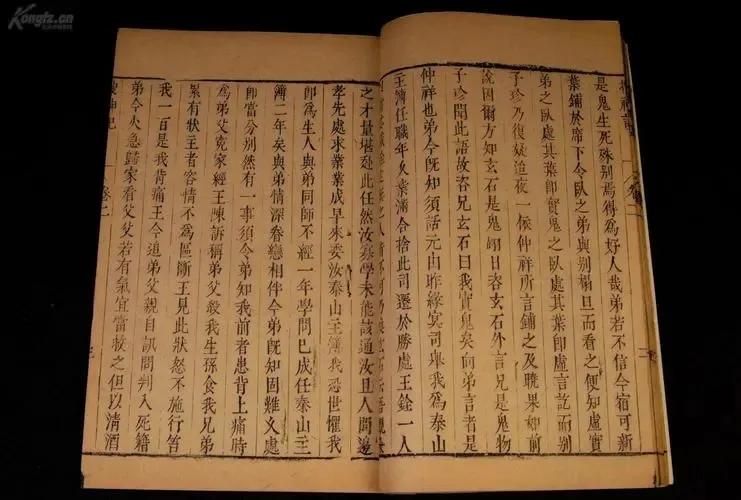 Kongfz.cn
是鬼生死殊别焉得爲好人哉弟若不信今宿可新
葉鋪於席下令臥之弟與別榻旦而看之便知虛實
弟之臥處其葉卽實鬼之臥處其葉卽虛言訖而別
子珍乃復疑迨夜一依仲祥所言鋪之及曉果如前
說因爾方知玄石是鬼翊日咨玄石外言兄是鬼物
子珍聞此語故咨兄玄石曰我實鬼矣向弟言者是
仲祥也弟今旣知須話元由昨緣冥司舉我爲泰山
主簿任職年久業滿合捨此司選於勝處王銓一人
之才量堪處此任然汝寡學未能該通汝且人間邊
孝先處求業業成早來委汝泰山主簿我恐世懼我
卽爲生人與弟同師不經一年學問已成任泰山主
簿二年矣與弟情深眷戀相伴今弟旣知固難久處
卽當分別然有一事須令弟知我前者患背上痛時
爲弟父冤家經王陳訴稱弟父殺我生孫食我兄弟
累有狀主者容情不爲區斷王見此狀怒不施行笞
我一百是我背痛王今追弟父親自訊問判入死籍
弟今火急歸家看父父若有氣宜當救之但以清酒
搜神記 卷二 三